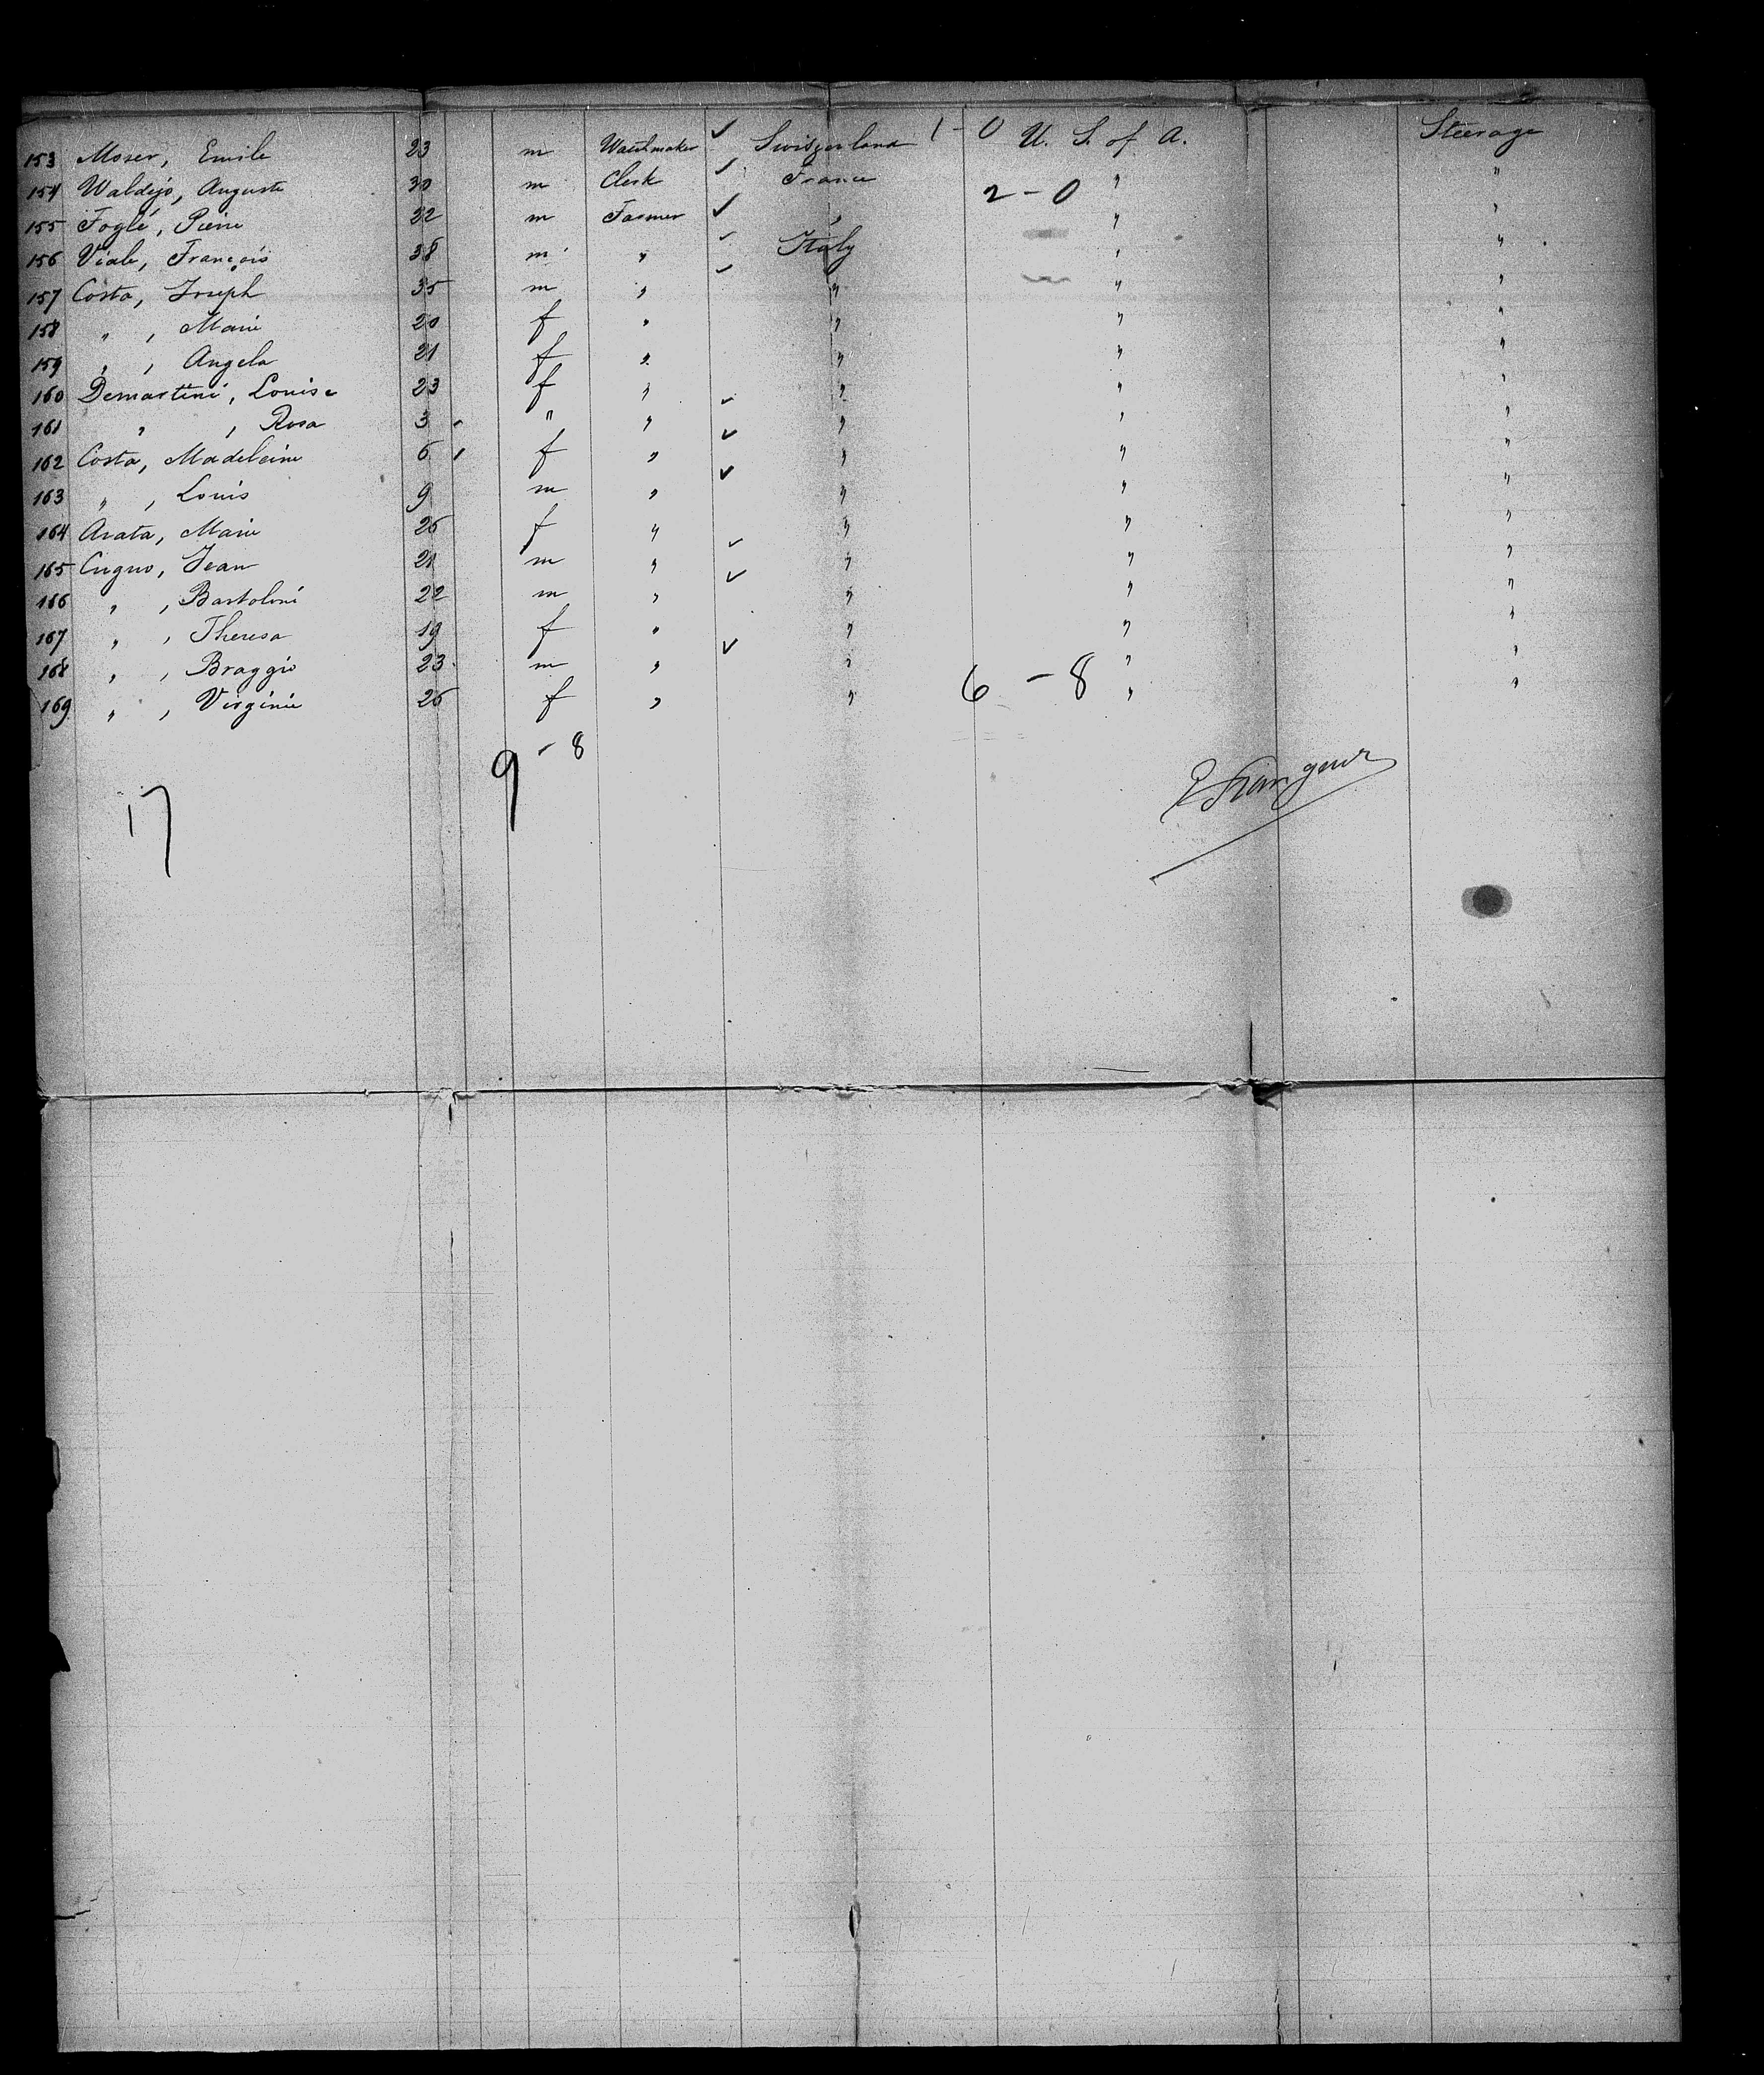 153 Moser, Emile 23 m Watchmaker ✓ Switzerland 1-0 U. S. of A. Steerage
154 Waldejo, Auguste 30 m Clerk ✓ France 2-0 " "
155 Foglé, Pierre 22 m Farmer ✓ " " "
156 Viale, François 38 m " ✓ Italy " "
157 Costa, Joseph 35 m " ✓ " " "
158 " , Marie 20 f " " " "
159 " , Angela 21 f " " " "
160 Demartini, Louise 23 f " " " "
161 " , Rosa 3 " " ✓ " " "
162 Costa, Madeleine 6 f " ✓ " " "
163 " , Louis 9 m " ✓ " " "
164 Arata, Marie 26 f " " " "
165 Cugno, Jean 21 m " ✓ " " "
166 " , Bartolini 22 m " ✓ " " "
167 " , Theresa 19 f " " " "
168 " , Braggio 23 m " ✓ " " "
169 " , Virginie 26 f " " 6-8 " "
9-8
17